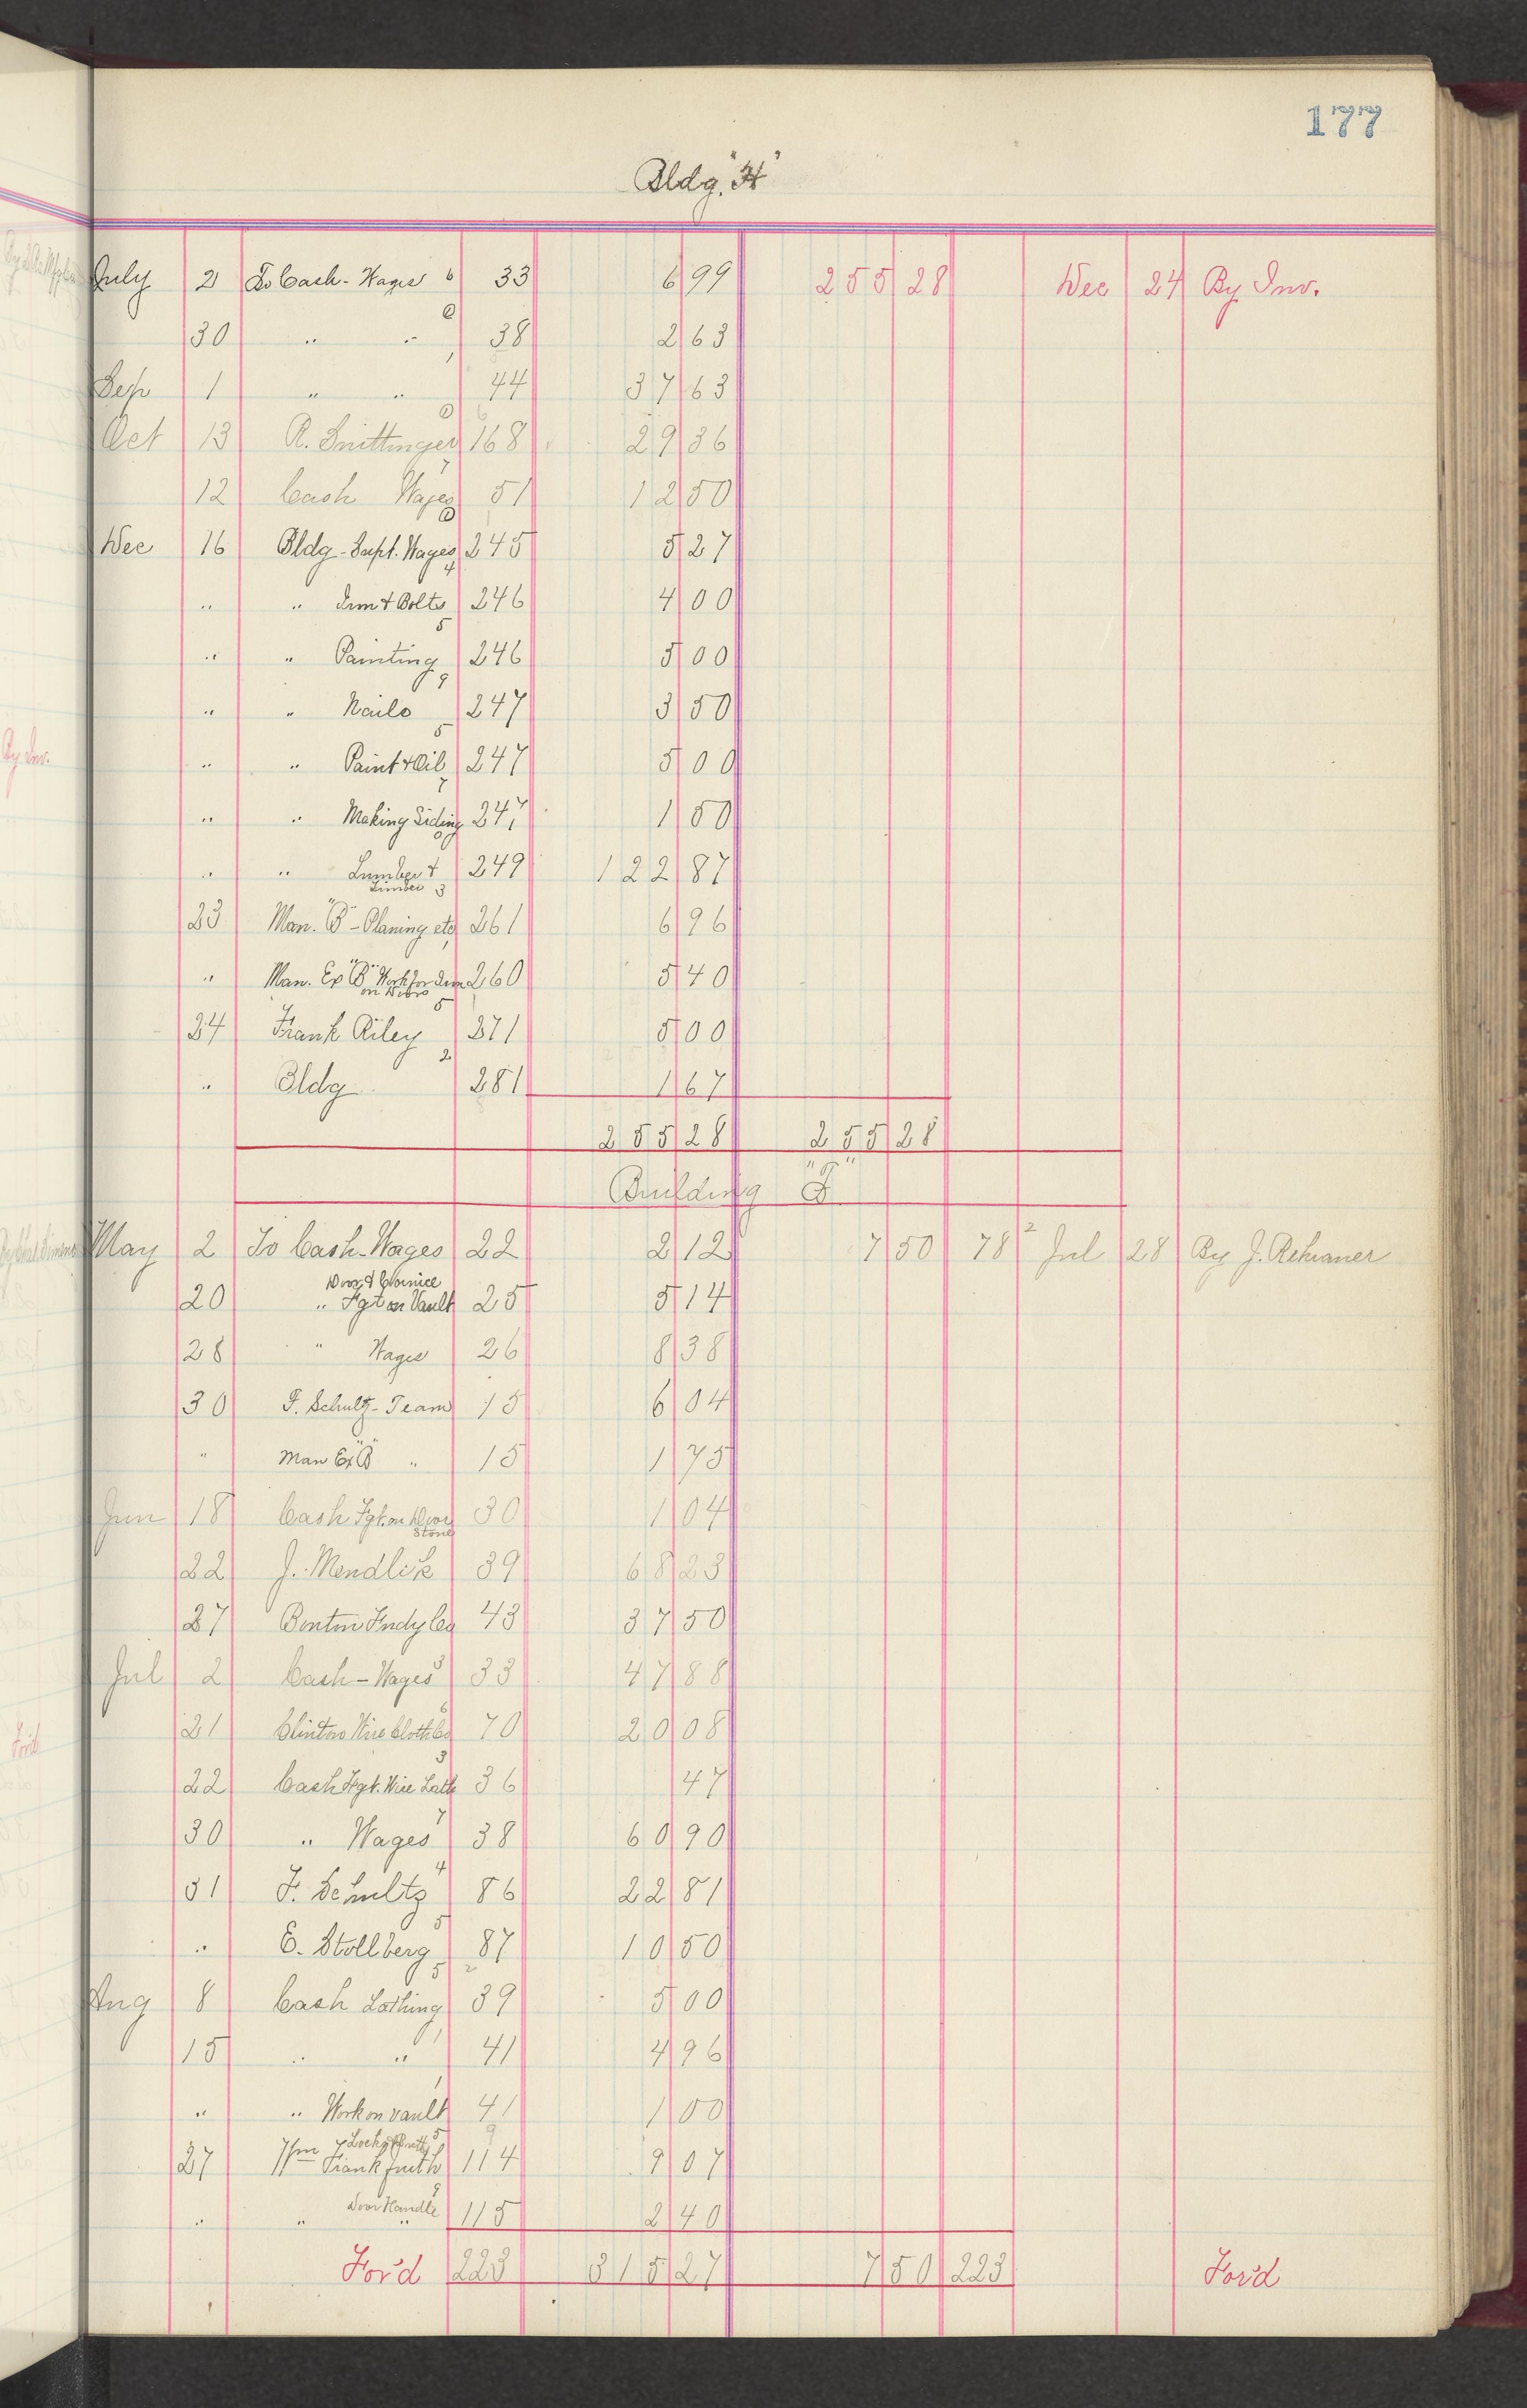 177
Bldg. "H"
July 2 To Cash - Wages 6 33 6 99 255 28 Dec 24 By Inv.
30 " " 38 2 63
Sep 1 " " 44 37 63
Oct 13 R. 168 29 36
12 Cash Wages 51 12 50
Dec 16 Bldg - Supt. Wages 245 5 27
" " Iron & Bolts 246 4 00
" " Painting 246 5 00
" " Nails 247 3 50
" " Paint & Oil 247 5 00
" " Making Siding 247 1 50
" " Lumber & Timber 249 122 87
23 Man. "B" - Planing etc 261 6 96
" Man. Ex "B" Work for 260 5 40
24 Frank Riley 271 5 00
" Bldg 281 1 67
255 28 255 28
Building "J"
May 2 To Cash - Wages 22 2 12 7 50 78 2 Jul 28 By J.
20 " Door & Cornice Fgt on Vault 25 5 14
28 " Wages 26 8 38
30 F. Schultz - Team 15 6 04
" Man Ex "B" " 15 1 75
Jun 18 Cash Fgt. on Door Stone 30 1 04
22 J. Mendlik 39 68 23
27 Benton Fndy Co 43 37 50
Jul 2 Cash - Wages 33 47 88
21 Clinton Wire Cloth Co 70 20 08
22 Cash Fgt. Wire Lath 36 47
30 " Wages 38 60 90
31 F. Schultz 86 22 81
" E. Stollberg 87 10 50
Aug 8 Cash Lathing 39 5 00
15 " " 41 4 96
" " Work on vault 41 1 00
27 Wm Frankfurth 114 9 07
" " Door Handle " 115 2 40
For'd 223 315 27 7 50 223 For'd